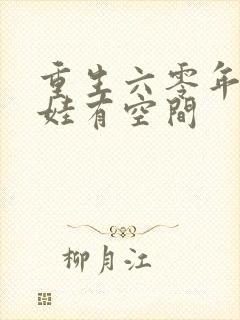 重生六零年
娃有空間
柳月江